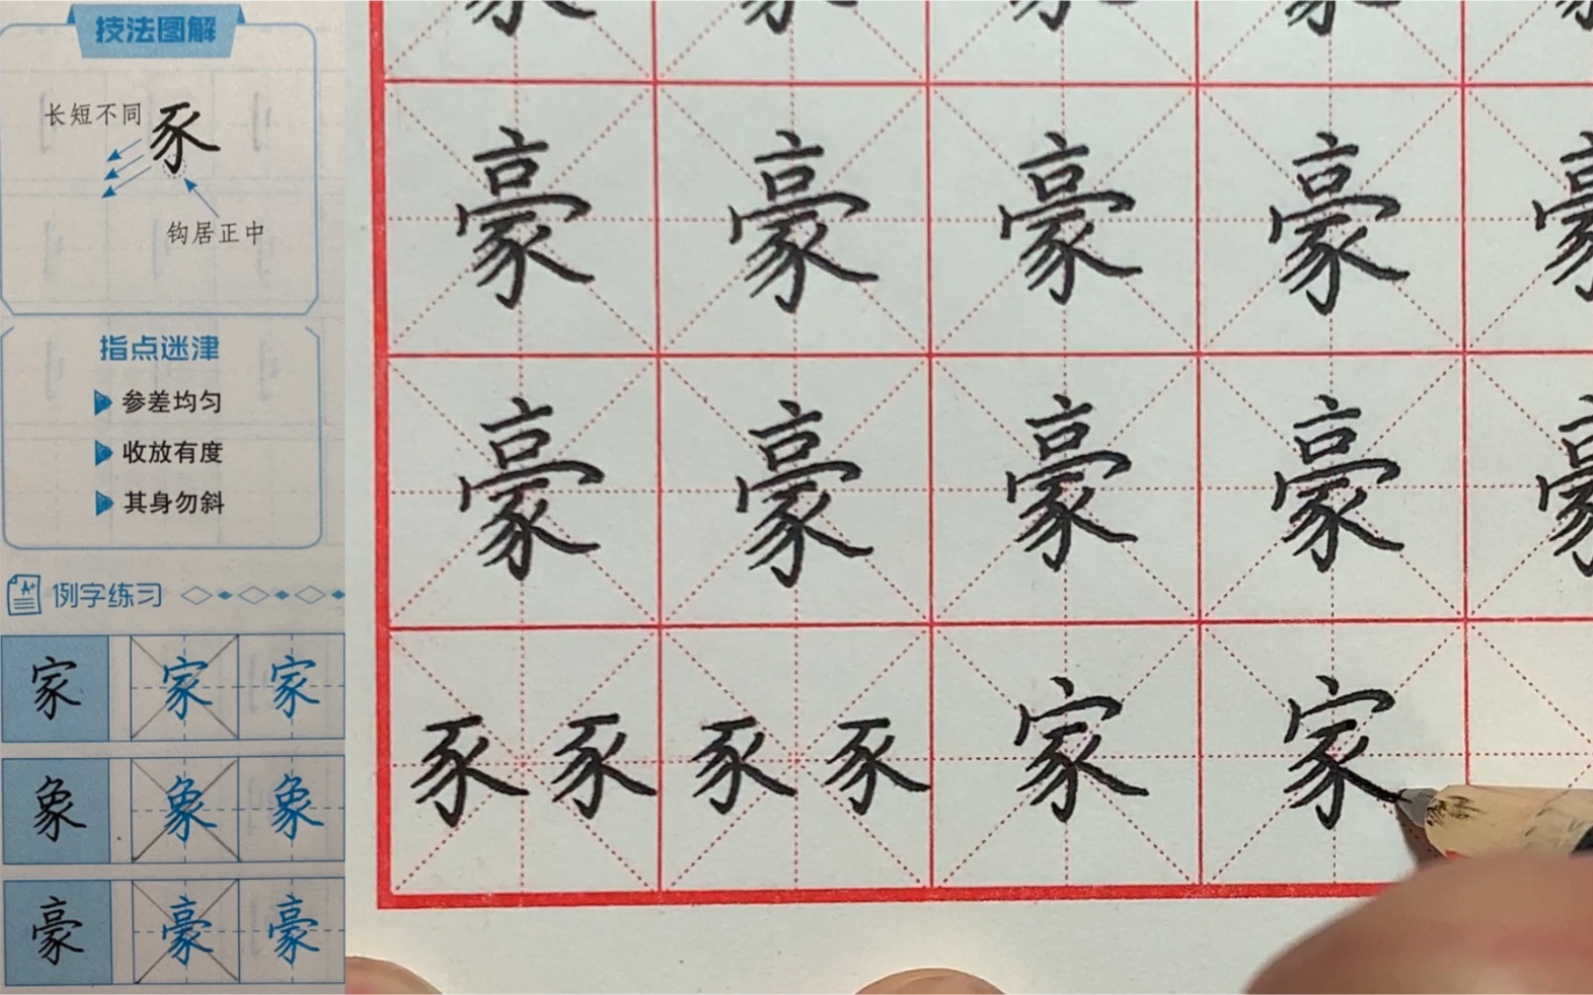 技法图解
长短不同
豕
钩居正中
指点迷津
参差均匀
收放有度
其身勿斜
例字练习
家 家 家
象 象 象
豪 豪 豪
豪 豪 豪 豪 豪
豪 豪 豪 豪 豪
豕 豕 豕 豕 家 家